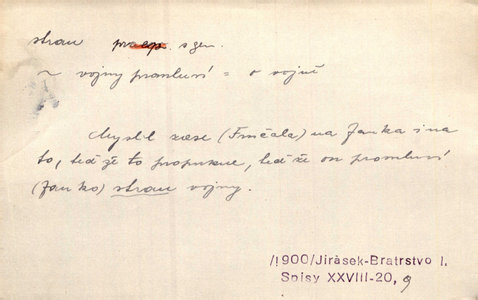 stran praep. s gen.
~ vojny promluví = o vojně
Myslil zase (Frnčala) na Janka i na
to, teď že to propukne, teď že on promluví
(Janko) stran vojny.
/1900/Jirásek-Bratrstvo I.
Spisy XXVIII-20, 9